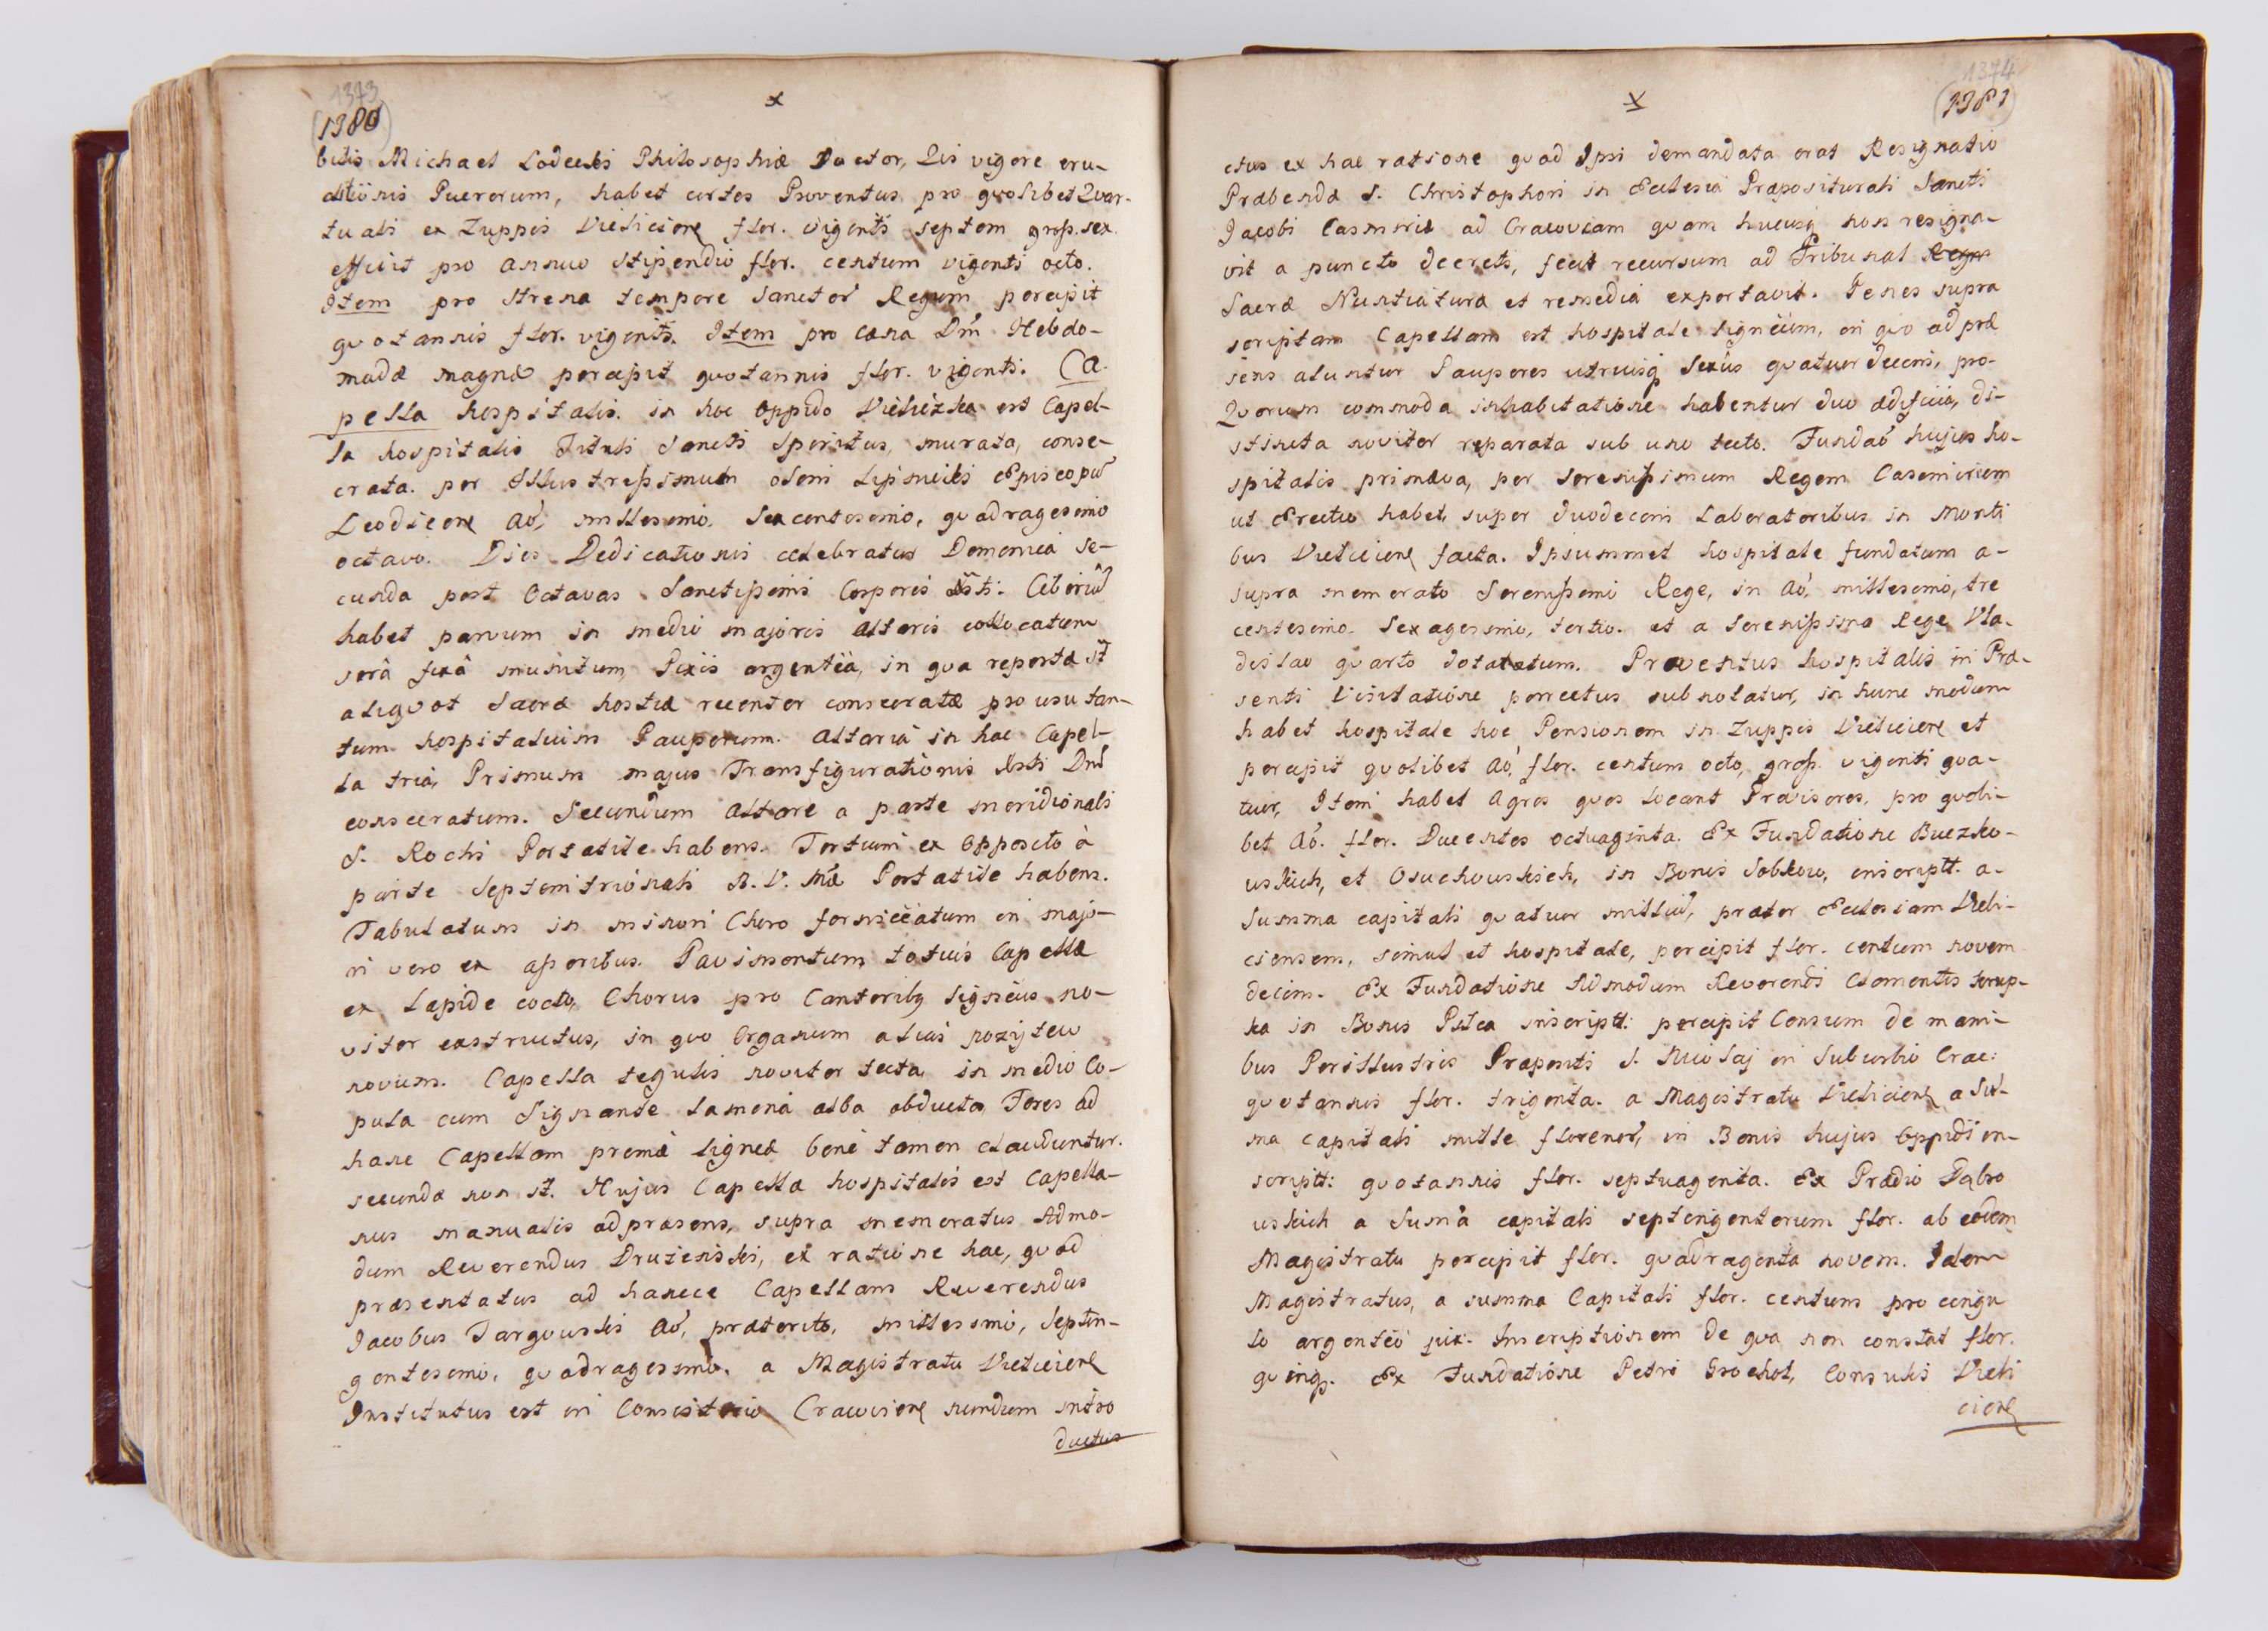 1373
(1380)
x
bilis Michael Lodecki Philosophiæ Doctor, Qis vigore eru-
ditiönis Puerorum, habet certos Proventus pro quolibet Quar-
tuali ex Zuppis Vielicien flor. viginti septem gross. sex.
efficit pro annuo stipendio flor. centum viginti octo.
Item pro strena tempore Sanctor Regum percipit
quotannis flor. viginti. Item pro cæna Dni Hebdo-
madæ magnæ percipit quotannis flor. viginti. Ca-
pella hospitalis. in hoc oppido Vieliczka est Capel-
la hospitalis Tituli Sancti Spiritus, murata, conse-
crata. per Illustrissimum olim Lipnicki Episcopū
Leodicen Aō, millesimo. Sexcentesimo, quadragesimo
octavo. Dies Dedicationis celebratus Dominica Se-
cunda post Octavas Sanctissimi Corporis Xsti. Ciboriū
habet parvum in medio majoris altaris collocatum
serâ fixâ munitum, Pixis argentëa, in qua repertæ st
aliquot Sacræ hostiæ recenter consecratæ pro usu tan-
tum hospitalium Pauperum. Altaria in hac Capel-
la tria, Primum majus Transfigurationis Xsti Dni
consecratum. Secundum altare a parte meridionali
S. Rochi Portatile habens. Tertium ex Opposito à
parte Septemtrionali B. V. Mæ Portatile habens.
Tabulatum in minori Choro forniceatum in majo-
ri vero ex asseribus. Pavimentum totius Capellæ
ex Lapide cocto, Chorus pro Cantoribq ligneus no-
viter exstructus, in quo Organum alias pozytew
novum. Capella tegulis noviter tecta, in medio Co-
pula cum Signante lamina alba obducta, Fores ad
hanc Capellam primæ ligneæ bene tamen clauduntur.
secundæ non st. Hujus Capellæ hospitalis est Capella-
nus manualis ad præsens, supra memoratus Admo-
dum Reverendus Druzenski, ex ratione hac, quod
præsentatus ad hancce Capellam Reverendus
Jacobus Targowski Aō, præterito, millesimo, Septin-
gentesimo, quadragesimo, a Magistratu Vielicien
Institutus est in Consistorio Cracovien nundum intro
ductus
1374
(1381)
x
ctus ex hac ratione quod Ipsi demandata erat Resignatio
Præbendæ S. Christophori in Ecclesia Præpositurali Sancti
Jacobi Casimiriæ ad Cracoviam quam hucusq non resigna-
vit a puncto decreti, fecit recursum ad Tribunal Regni
Sacræ Nuntiaturæ et remedia exportavit. Penes supra
scriptam Capellam est hospitale ligneum, in quo ad præ
sens aluntur Pauperes utriusq Sexûs quatuor decim, pro-
Quorum commoda inhabitatione habentur duo ædificia, di-
stincta noviter reparata sub uno tecto. Fundaō hujus ho-
spitalis primæva, per Serenissimum Regem Casimirum
ut Erectio habet, super duodecim Laboratoribus in Monti
bus Vielicien facta. Ipsummet hospitale fundatum a-
supra memorato Serenissimo Rege, in Aō, millesimo, tre
centesimo. Sexagesimo, tertio. et a Serenissimo Rege Vla-
dislao quarto dotatum. Proventus hospitalis in Præ-
senti Visitatione porrectus subnotatur, in hunc modum
habet hospitale hoc Pensionem in Zuppis Vielicien et
percipit quolibet Aō, flor. centum octo, gross. viginti qua-
tuor, Item habet Agros quos locant Provisores, pro quoli-
bet Aō. flor. Ducentos octuaginta. Ex Fundatione Buczko-
wskich, et Osuchowskich, in Bonis Sobkow, inscriptt. a-
Summa capitali quatuor milliū, præter Ecclesiam Vieli-
ciensem, simul et hospitale, percipit flor. centum novem
decim. Ex Fundatione Admodum Reverendi Clementis
ka in Bonis inscriptt: percipit Censum de mani-
bus Perillustris Præpositi S. Nicolaj in Suburbio Crac:
quotannis flor. triginta. a Magistratu Vielicien a Sū-
ma capitali mille florenor, in Bonis hujus Oppidi in-
scriptt: quotannis flor. septuaginta. Ex Prædio Dąbro
wskich a Suma capitali septingentorum flor. ab eodem
Magistratu percipit flor. quadraginta novem. Idem
Magistratus, a summa Capitali flor. centum pro cingu
lo argenteo jux. Inscriptionem de qua non constat flor.
quinq. Ex Fundatione Petri Grochot, Consulis Vieli
cien